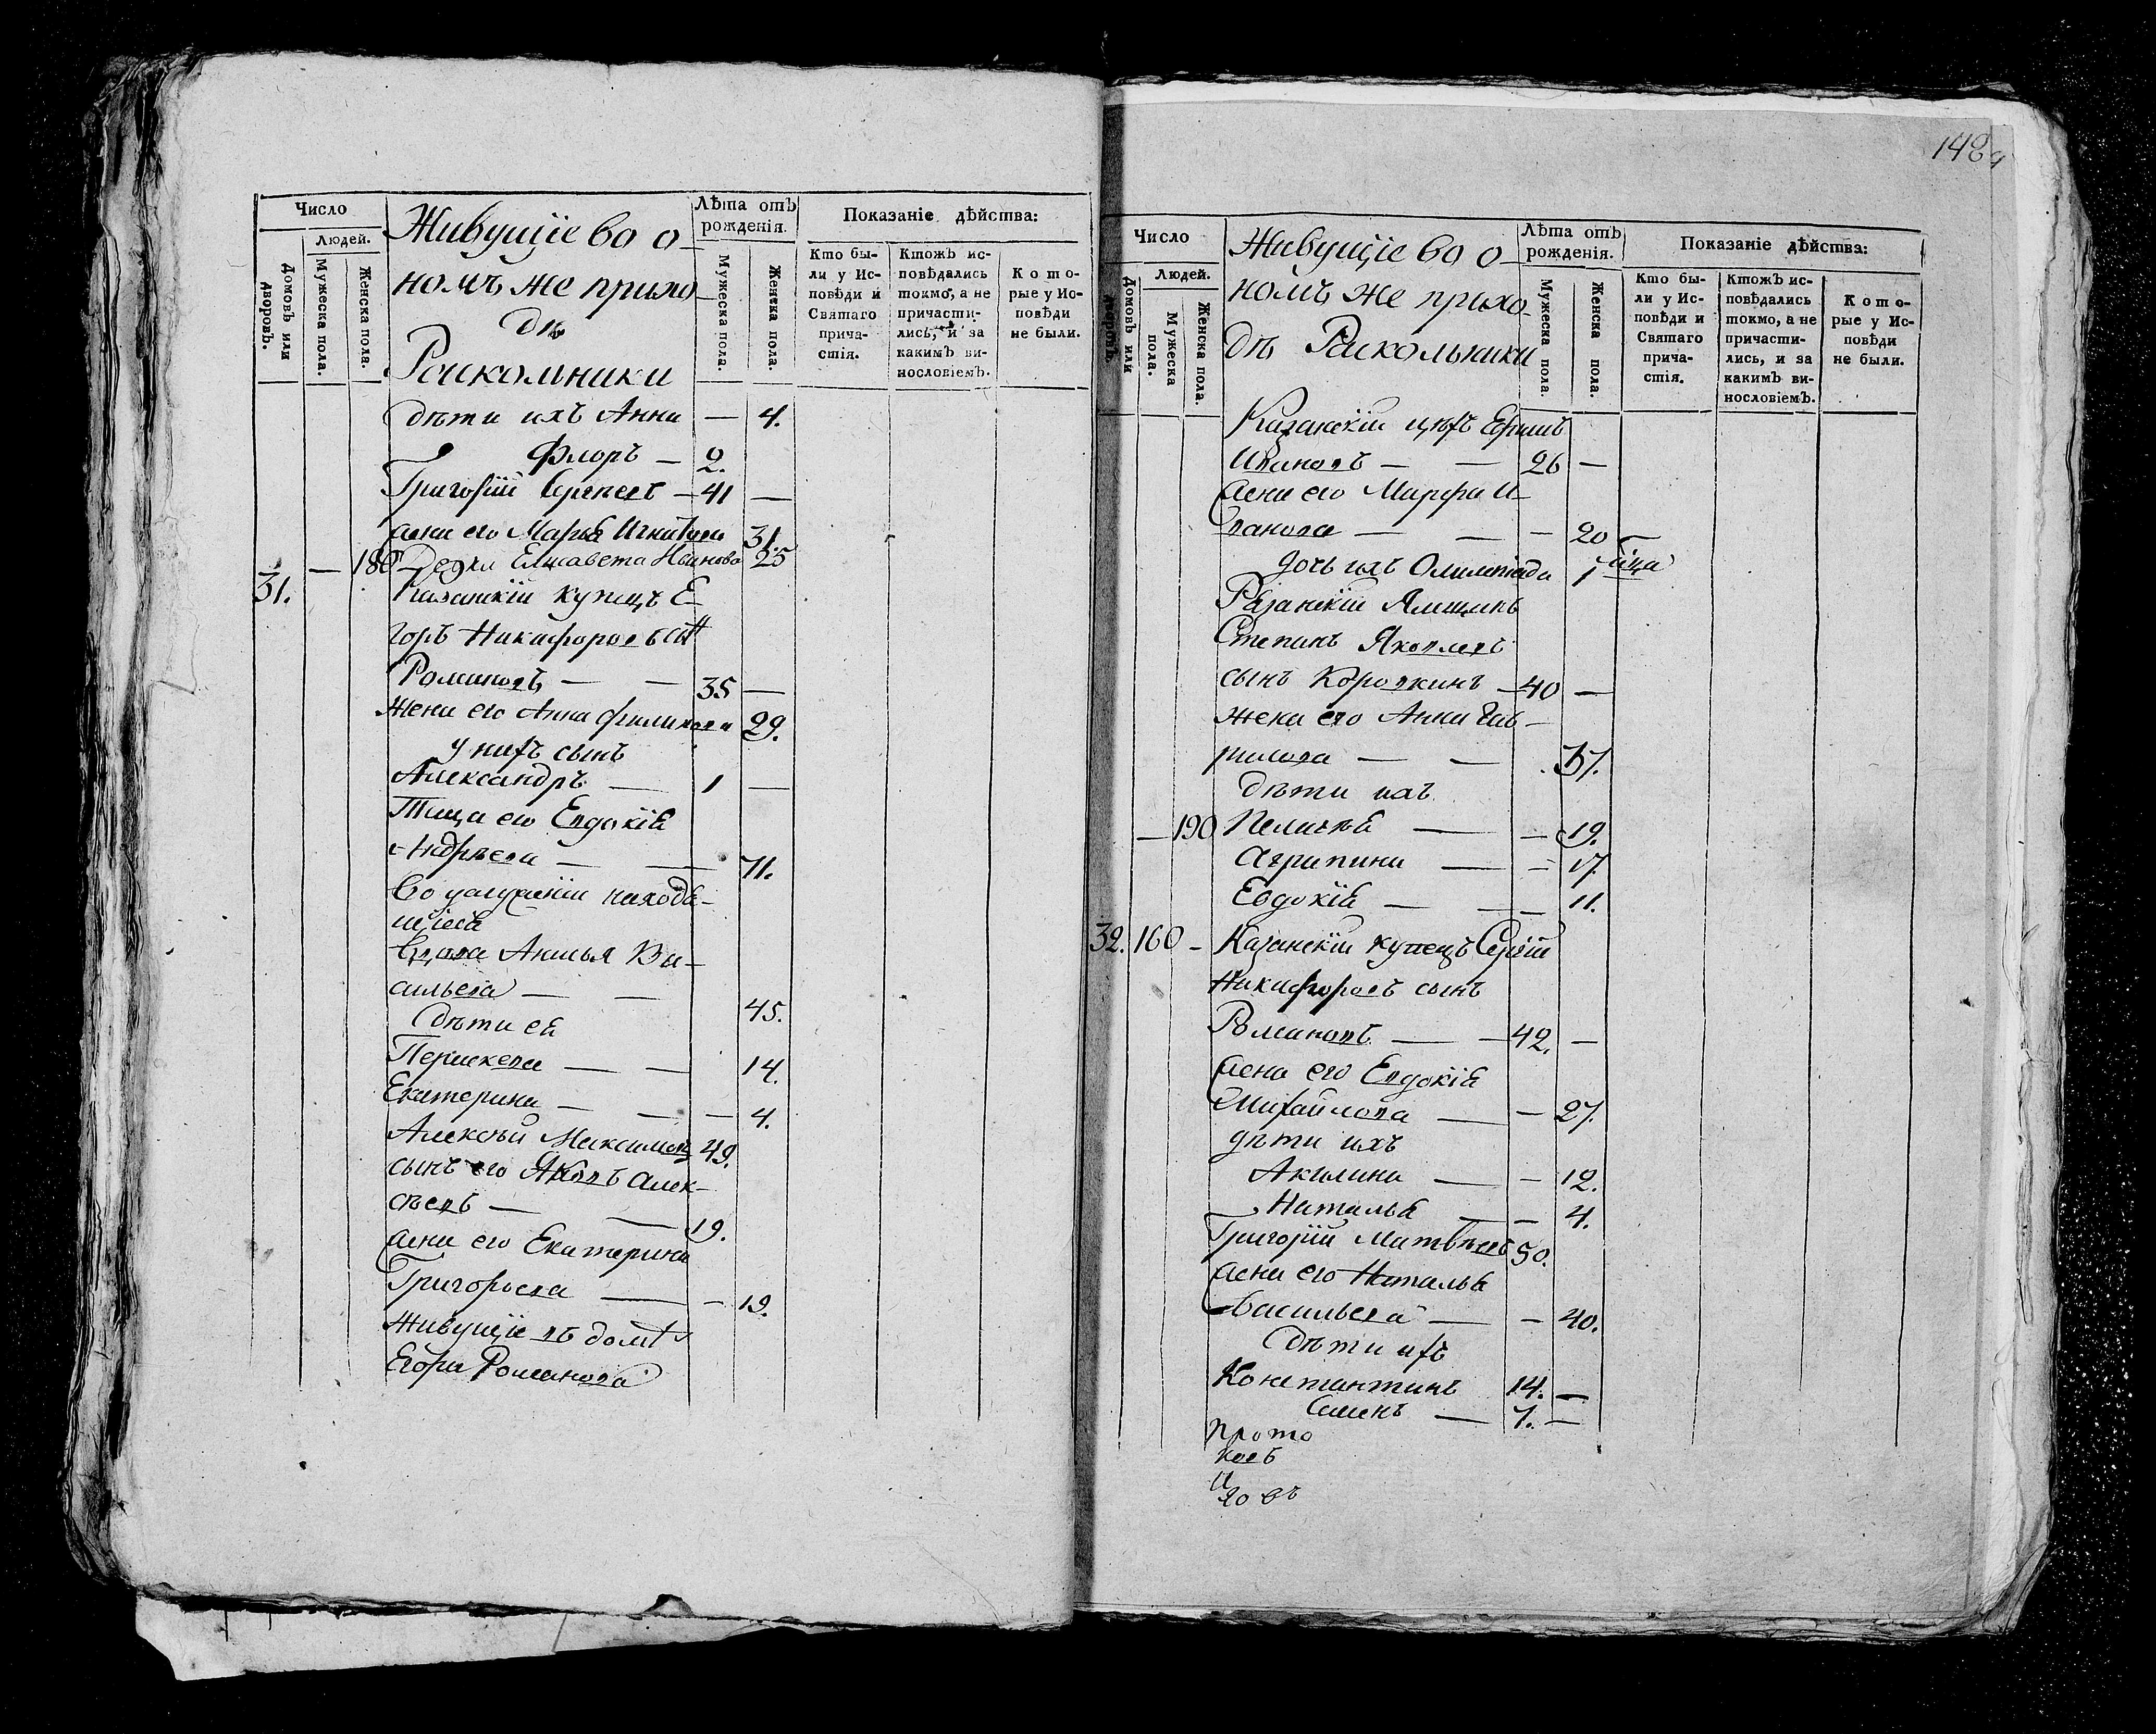 Число
Людей.
Домовъ или дворовъ.
Мужеска пола.
Женска пола.
Живущіе во о-
номъ же прихо-
дѣ
Раскольники
Лѣта отъ рожденія.
Мужеска пола.
Женска пола.
Показаніе дѣйства:
Кто бы-
ли у Ис-
повѣди и
Святаго
прича-
стія.
Ктожъ ис-
повѣдались
токмо, а не
причасти-
лись, и за
какимъ ви-
нословіемъ.
Кото-
рые у Ис-
повѣди
не были.
дѣти ихъ Анна — 4.
Флоръ — 2.
Григорій Сергѣевъ — 41 —
жена его Марья 31.
— 180 Елисавета Иванова 25
31. Казанскій купецъ Е-
горъ Никифоровъ сынъ
Романовъ — — 35 —
жена его Анна Филипова 29.
у нихъ сынъ
Александръ — 1 —
Теща его Евдокія
Андрѣева — — 71.
Во услуженіи находя-
щіеся
Вдова Анисья Ва-
сильева — — 45.
дѣти ея
Пераскева — — 14.
Екатерина — — — 4.
Алексѣй Максимовъ 49.
сынъ его Яковъ Алек-
сѣевъ — — 19.
жена его Екатерина
Григорьева — — 19.
Живущіе въ домѣ
Егора Романова
148
Число
Людей.
Домовъ или дворовъ.
Мужеска пола.
Женска пола.
Живущіе во о-
номъ же прихо-
дѣ Раскольники
Лѣта отъ рожденія.
Мужеска пола.
Женска пола.
Показаніе дѣйства:
Кто бы-
ли у Ис-
повѣди и
Святаго
прича-
стія.
Ктожъ ис-
повѣдались
токмо, а не
причасти-
лись, и за
какимъ ви-
нословіемъ.
Кото-
рые у Ис-
повѣди
не были.
Казанскій
Ивановъ — — 26 —
жена его Марфа И-
ванова — — — 20
дочь ихъ Олимпіада 1
Степанъ Яковлевъ
сынъ Коровкинъ — 40 —
жена его Анна Гав-
рилова — — 37.
дѣти ихъ
— 190 Пелагѣя — — 19.
Агрипина — — 17.
Евдокія — — — 11.
32. 160 — Казанскій купецъ Сергѣй
Никифоровъ сынъ
Романовъ — — 42. —
жена его Евдокія
Михайлова — — 27.
дѣти ихъ
Акилина — — 12.
Наталья — — 4.
Григорій Матвѣевъ 50.
жена его Наталья
Васильева — — 40.
дѣти ихъ
Константинъ 14. —
Семенъ — 7. —
прото